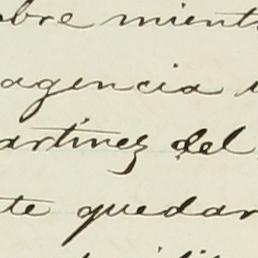 obre mient
agencia
artinez del
te quedar